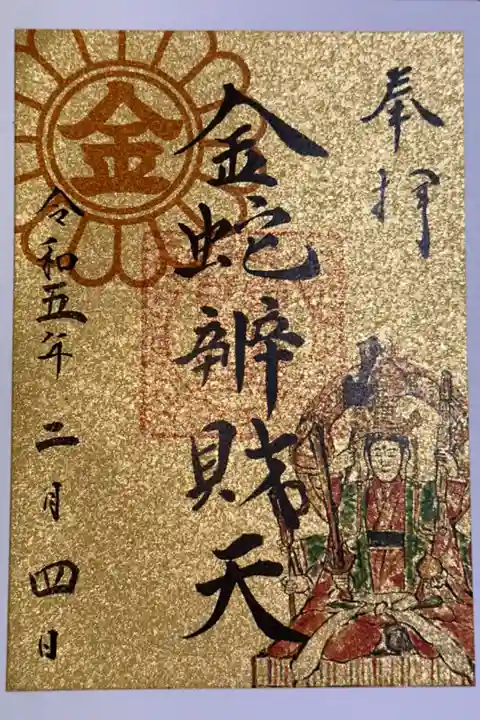 奉拝
金蛇辨財天
金
令和五年二月四日